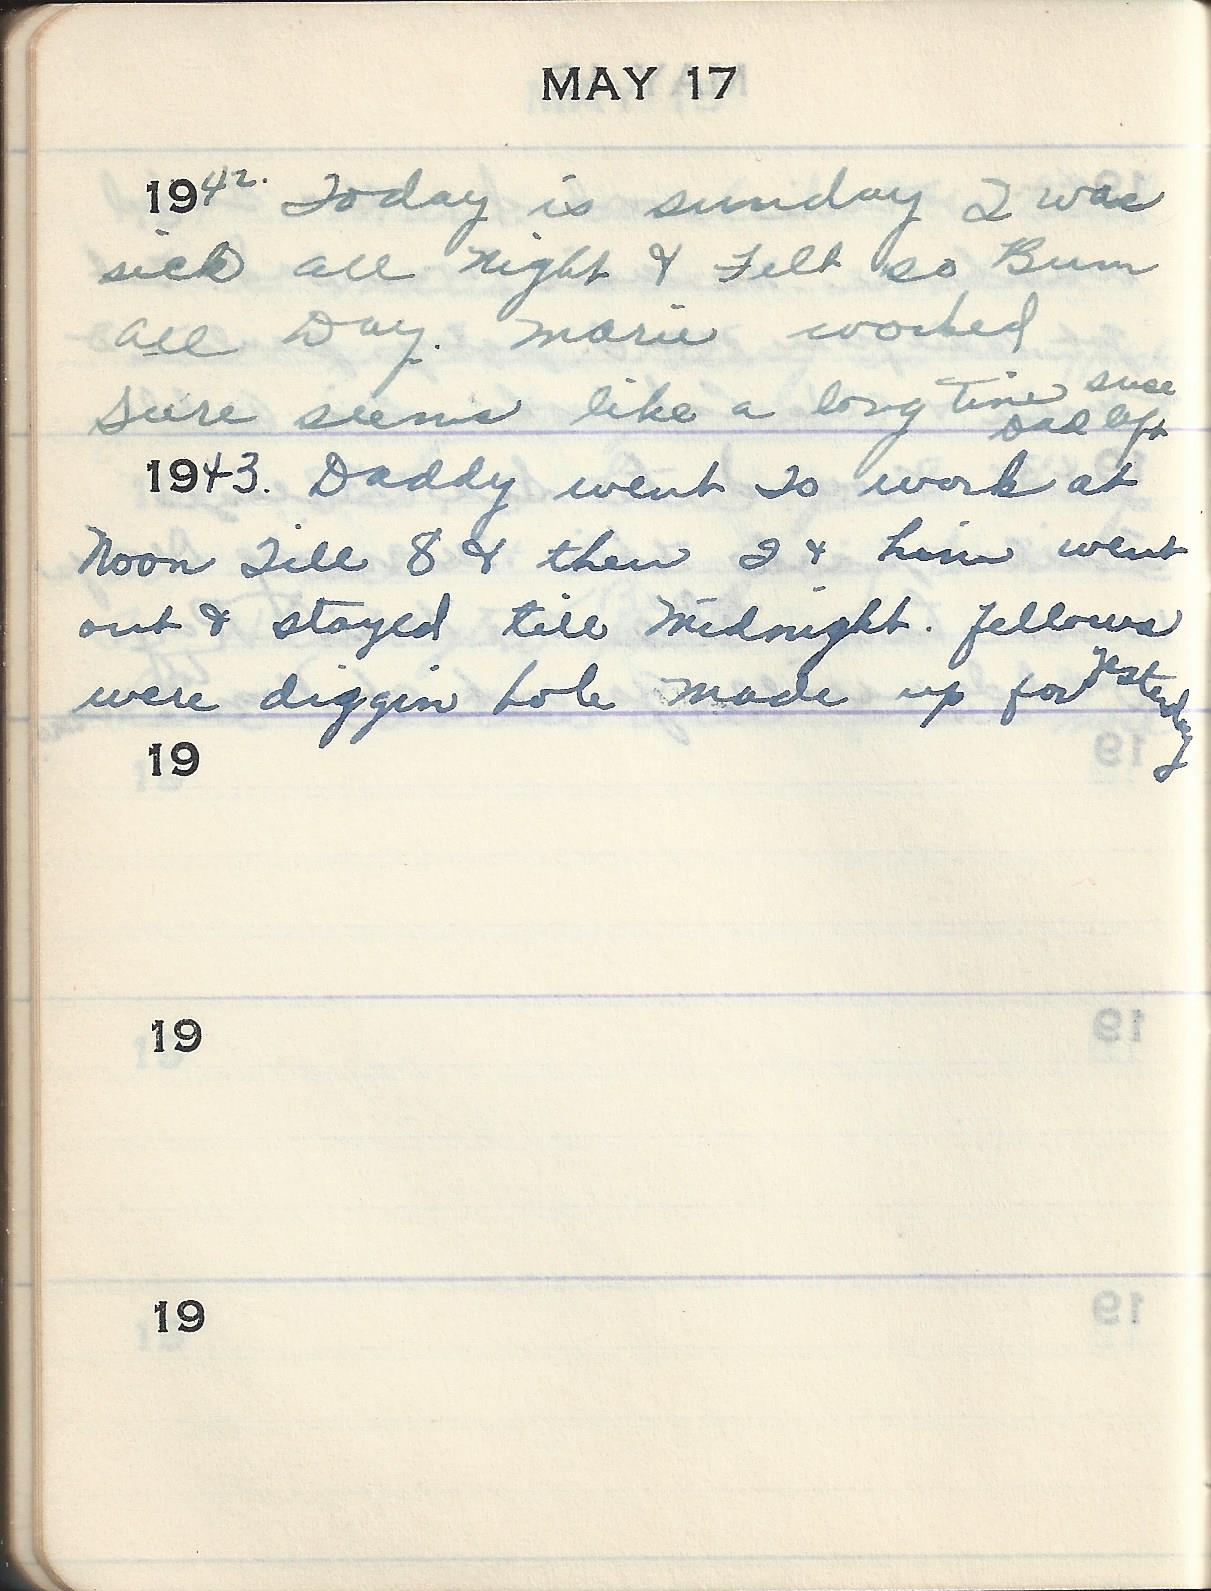 MAY 17
1942. Today is sunday I was
sick all Night & Felt so Bum
all Day. Marie worked
Sure seems like a long Time since
Dad left
1943. Daddy went to work at
Noon Till 8 & then I & him went
out & stayed till Midnight. fellows
were diggin hole made up for Yesterday
19
19
19